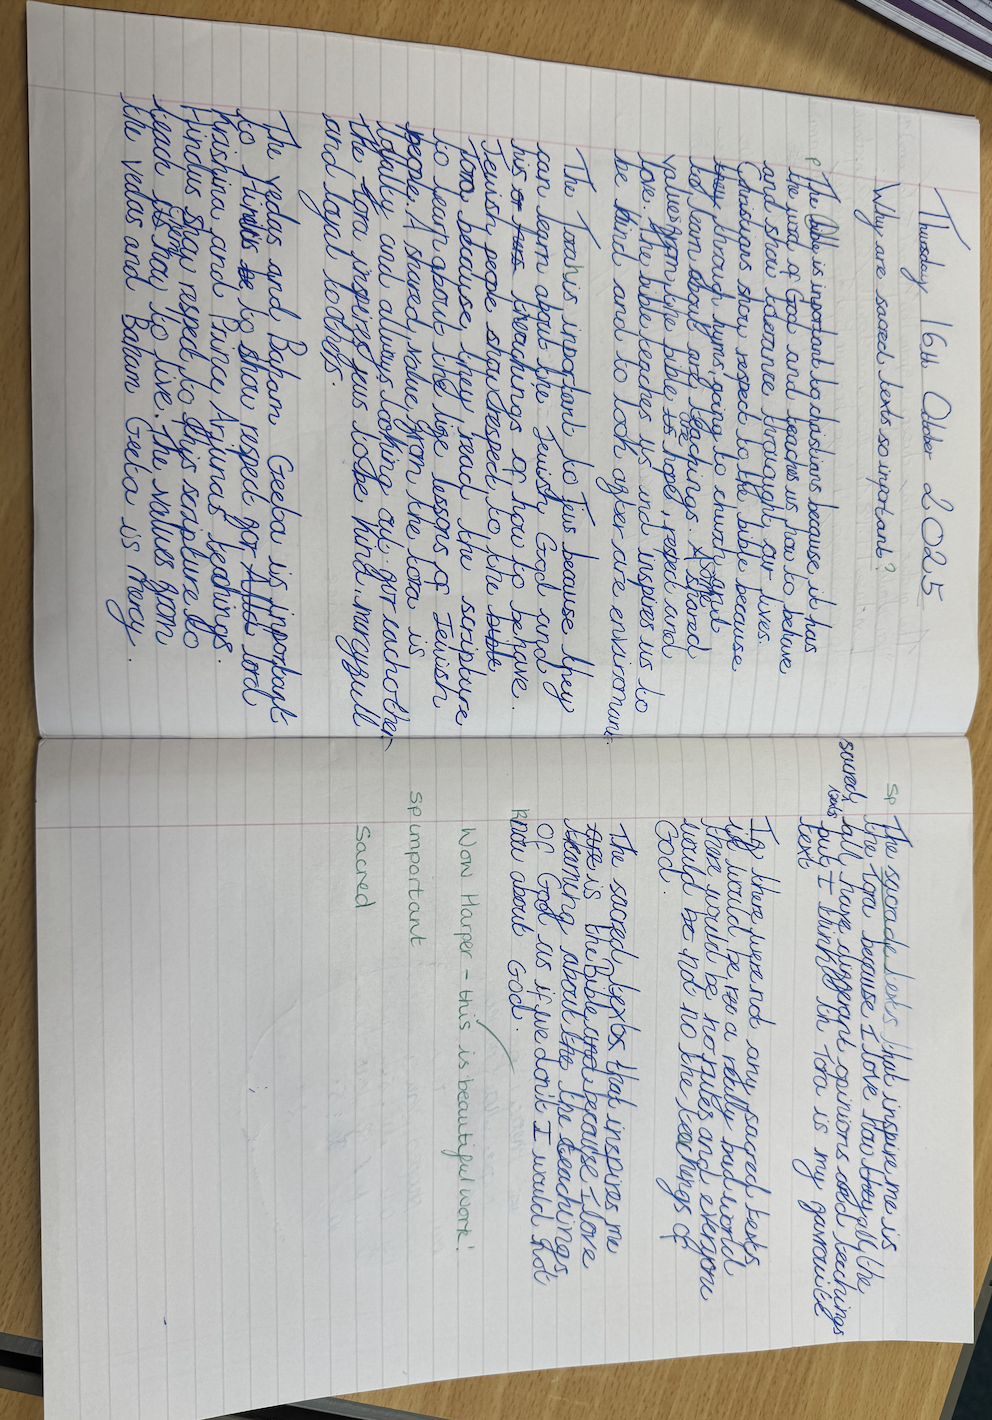 Thursday 16th Octber 2025
Why are sacred texts so inportant?
P
The Bible is inportant to christians because it has
the word of God and teaches us how to behive
and show tolerance throught our lives.
Christians show respect to the bible because
they through hyms, going to church
to learn about and the teachings A shared
values from the bible is hope, respect and
love. The bible teaches us and inspires us to
be kind and to look after are enviroment.
The Torah is inportant to Jews because they
can learn about the Jewish God and
his teachings of how to behave.
Jewish peope show respect to the bible
Tora because they read the scripture
to learn about the life lessons of Jewish
peope. A shered value from the tora is
loyally and allways looking out for eachother
the tora inspires us to be kind, mercyfull
and loyal to others.
The Vedas and Baham Geeta is inportant
to Hindus to show respect for lord
Krishna and Prince Arjunas teachings.
Hindus show respect to this scripture to
read how to live. The values from
the Vedas and Baham Geeta is Mercy.
Sp
The sacrade texts that inspire me is
the Tora because I love how they all the
sacred texts
all have diggerant opinions and teachings
but I think the Tora is my favrouite
text
If there were not any sacred texts
it would be a really bad world
there would be no rules and everyone
would be not no the teachings of
God.
The sacred texts that inspires me
is the bible and because I love
learning about the teachings
of God us if we don't I would not
Know about God.
Wow Harper - this is beautiful work!
Sp important
Sacred